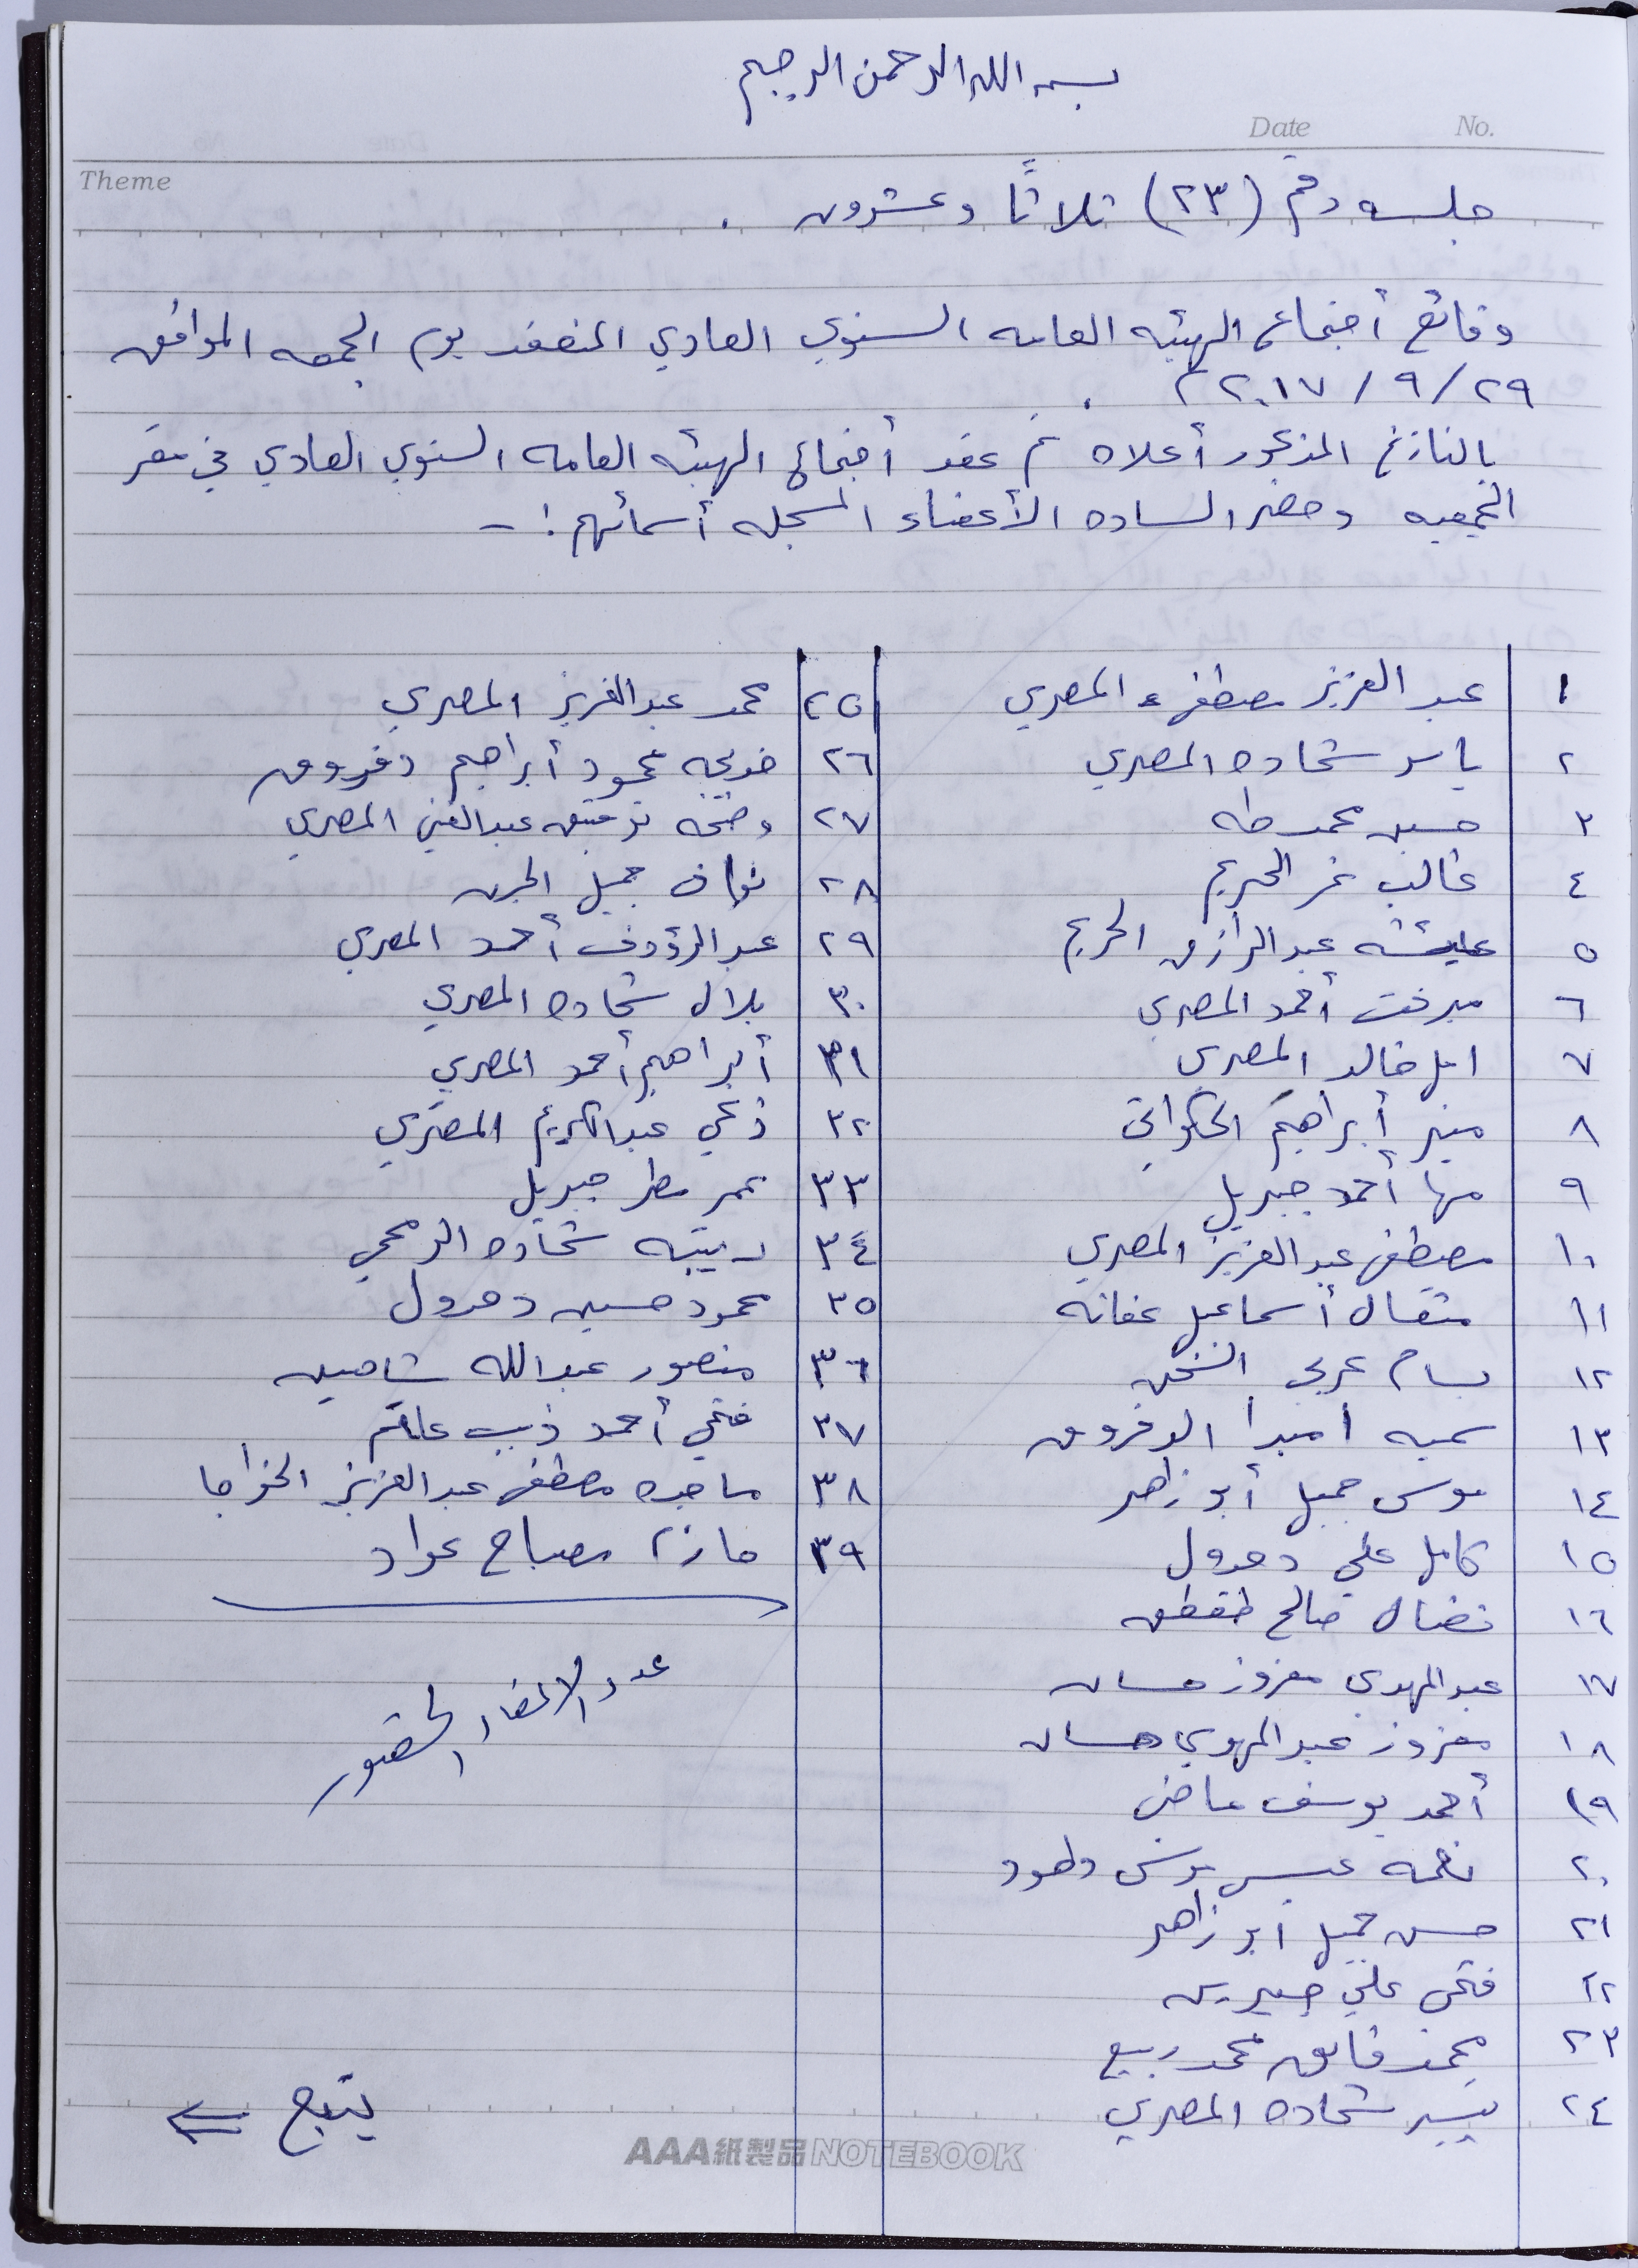 بسم الله الرحمن الرحيم
Date No.
Theme
جلسه رقم (٢٣) ثلاثًا وعشرون .
وقائع أجتماع الهيئه العامه السنوي العادي المنعقد يوم الجمعه الموافق
٢٩/٩/٢٠١٧م .
بالتاريخ المذكور أعلاه تم عقد أجتماع الهيئه العامه السنوي العادي في مقر
الجمعيه وحضر الساده الأعضاء المسجله أسمائهم :-
١ عبد العزيز مصطفى المصري
٢ ياسر شحاده المصري
٣ حسين محمد طه
٤ غالب نمر الحريم
٥ عايشه عبد الرازق الحريم
٦ ميرفت أحمد المصري
٧ امل خالد المصري
٨ منير أبراهيم الحكواتي
٩ مها أحمد جبريل
١٠ مصطفى عبد العزيز المصري
١١ مثقال أسماعيل عفانه
١٢ بسام عربي الشخن
١٣ سميه امبدا الدقروق
١٤ موسى جميل أبو زاهر
١٥ كامل علي دعدول
١٦ نضال صالح طقطق
١٧ عبد المهدي معزوز حسان
١٨ معزوز عبد المهدي حسان
١٩ أحمد يوسف ماضي
٢٠ نعمه عيسى يونس داهود
٢١ حسن جميل ابو زاهر
٢٢ فتحي علي
٢٣ محمد فايق محمد ربيع
٢٤ يسير شحاده المصري
٢٥ محمد عبد العزيز المصري
٢٦ خديجه محمود أبراهيم دقروق
٢٧ وضحه توفيق عبد الغني المصري
٢٨ نواف جميل الجرن
٢٩ عبد الرؤوف أحمد المصري
٣٠ بلال شحاده المصري
٣١ أبراهيم أحمد المصري
٣٢ زكي عبد الكريم المصري
٣٣ عمر مطر جبريل
٣٤ ربيبه شحاده الرمحي
٣٥ محمود حسين دعدول
٣٦ منصور عبد الله شاهين
٣٧ فتحي أحمد ذيب علقم
٣٨ ماجده مصطفى عبد العزيز الخواجا
٣٩ مازن مصباح عواد
عدد الاعضاء الحضور
يتبع ⇐
AAA紙製品NOTEBOOK